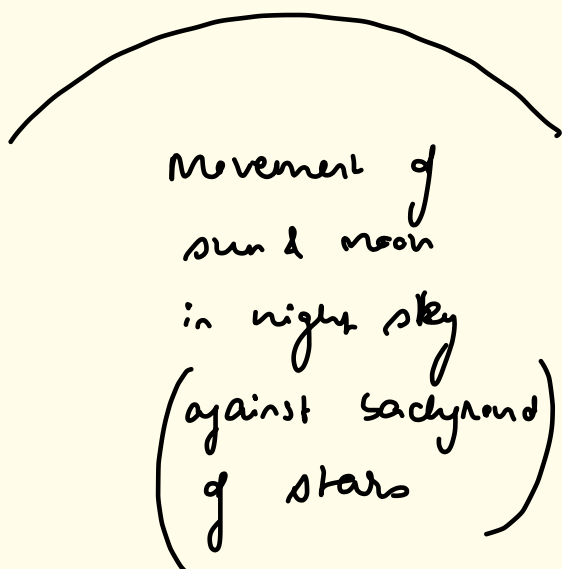 Movement of
sun & moon
in night sky
(against background
of stars)